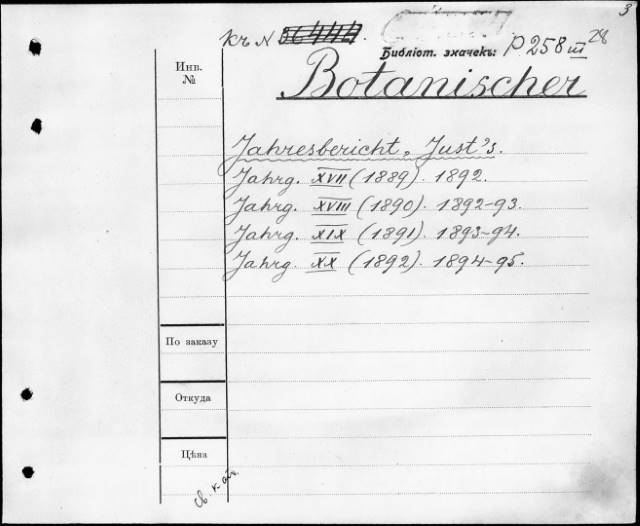 3
къ N
Библіот. значекъ: P. 258 III 28
Инв.
№
Botanischer
Jahresbericht, Just's.
Jahrg. XVII (1889). 1892.
Jahrg. XVIII (1890). 1892-93.
Jahrg. XIX (1891). 1893-94.
Jahrg. XX (1892). 1894-95.
По заказу
Откуда
Цѣна
св. к.